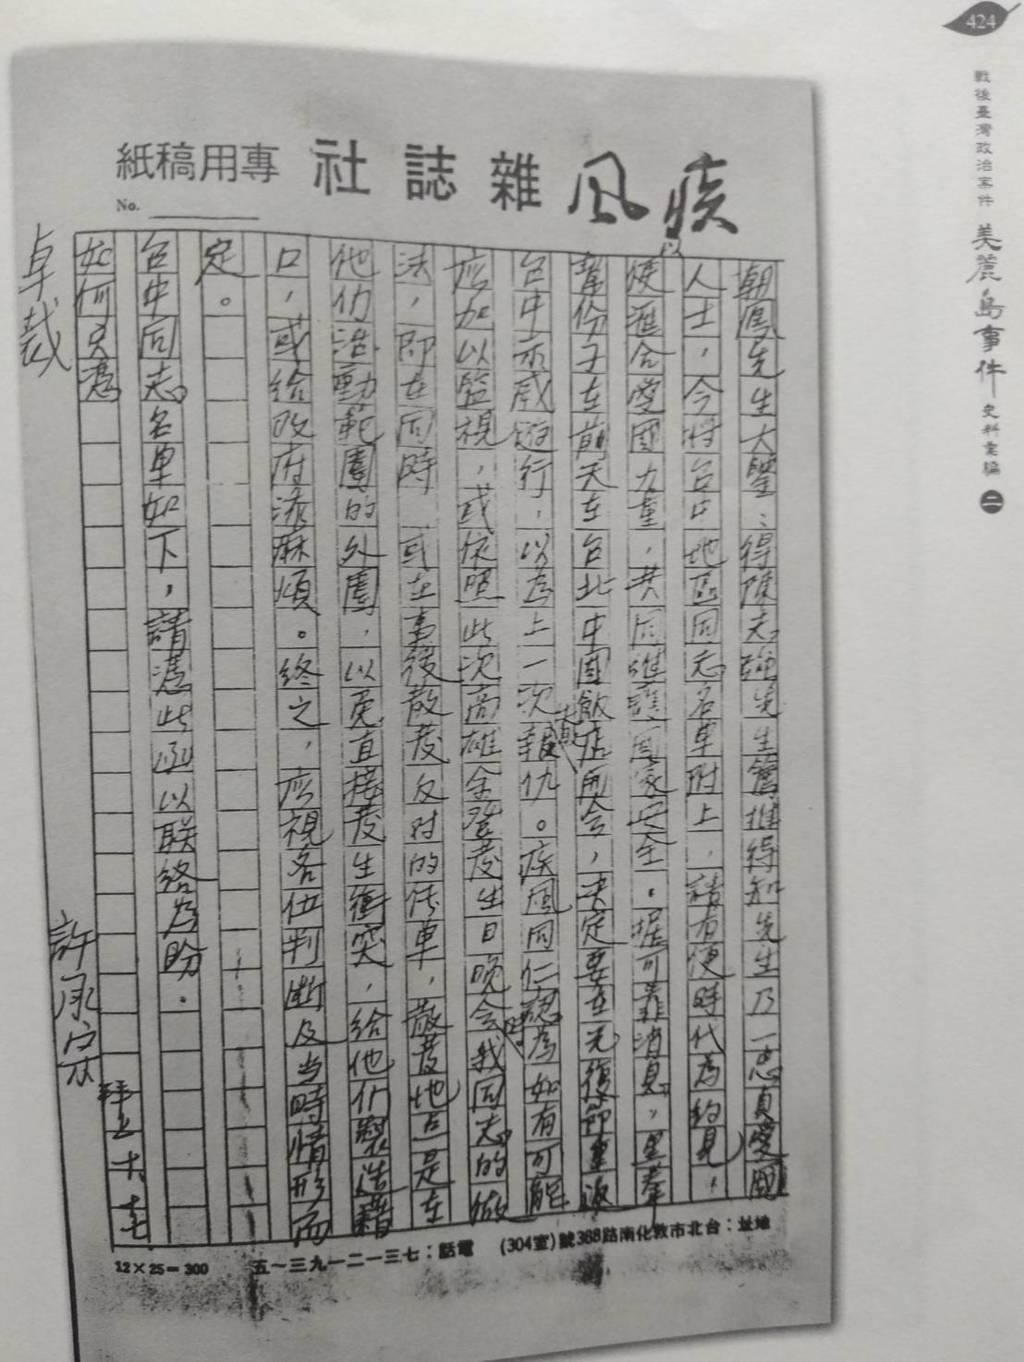 424
戰後臺灣政治案件 美麗島事件 史料彙編 二
疾风雜誌社 專用稿紙
No.
朝鳳先生大鑒：得陳志強先生舊推得知先生乃一忠貞愛國
人士，今將台中地區同志名单附上，請有便時代為約見，
以便滙合愛國力量，共同維護国家安全。据可靠消息，黑拳
幫份子在前天在台北中國飯店開会，决定要在光復節重返
台中市威遊行，以為上一次報仇。疾風同仁認為如有可能
應加以監視，或依照此次高雄余登發生日晚会時我同志的做
法，即在同時 或在事後散发反对的传单，散發地点是在
他们活動範圍的外圍，以免直接發生衝突，給他们製造藉
口，或給政府添麻煩。終之，應視各位判断及当時情形而
定。
台中同志名单如下，請憑此函以联絡為盼。
如何
卓裁
許承宗
拜上 十 七
地址：台北市敦化南路388號(304室) 電話：七三一二一九三～五
12×25=300